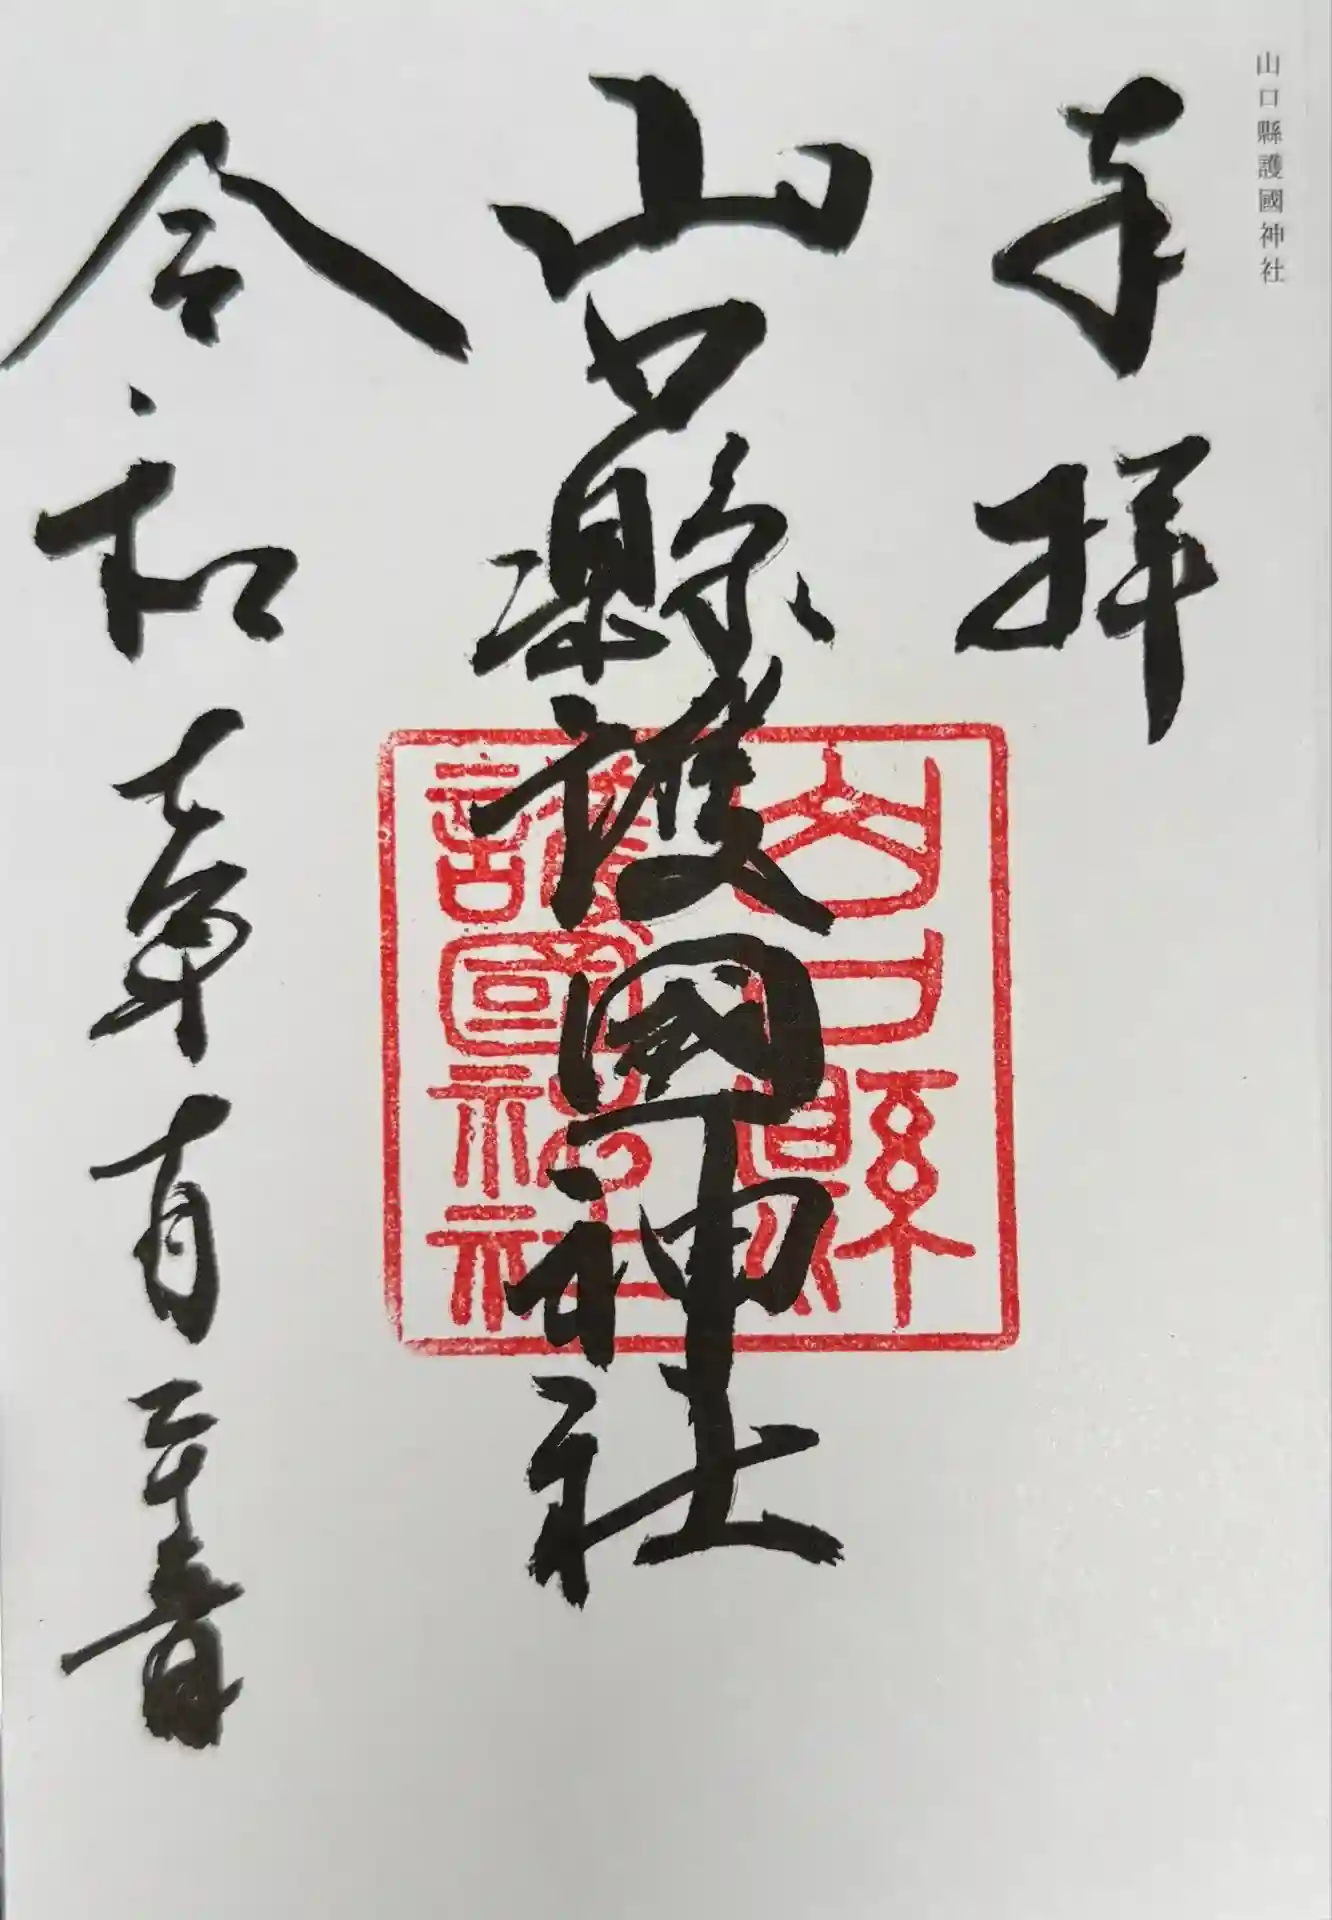 山口縣護國神社
奉拝
山口縣護國神社
令和七年十月二十日
山口縣
護國神社